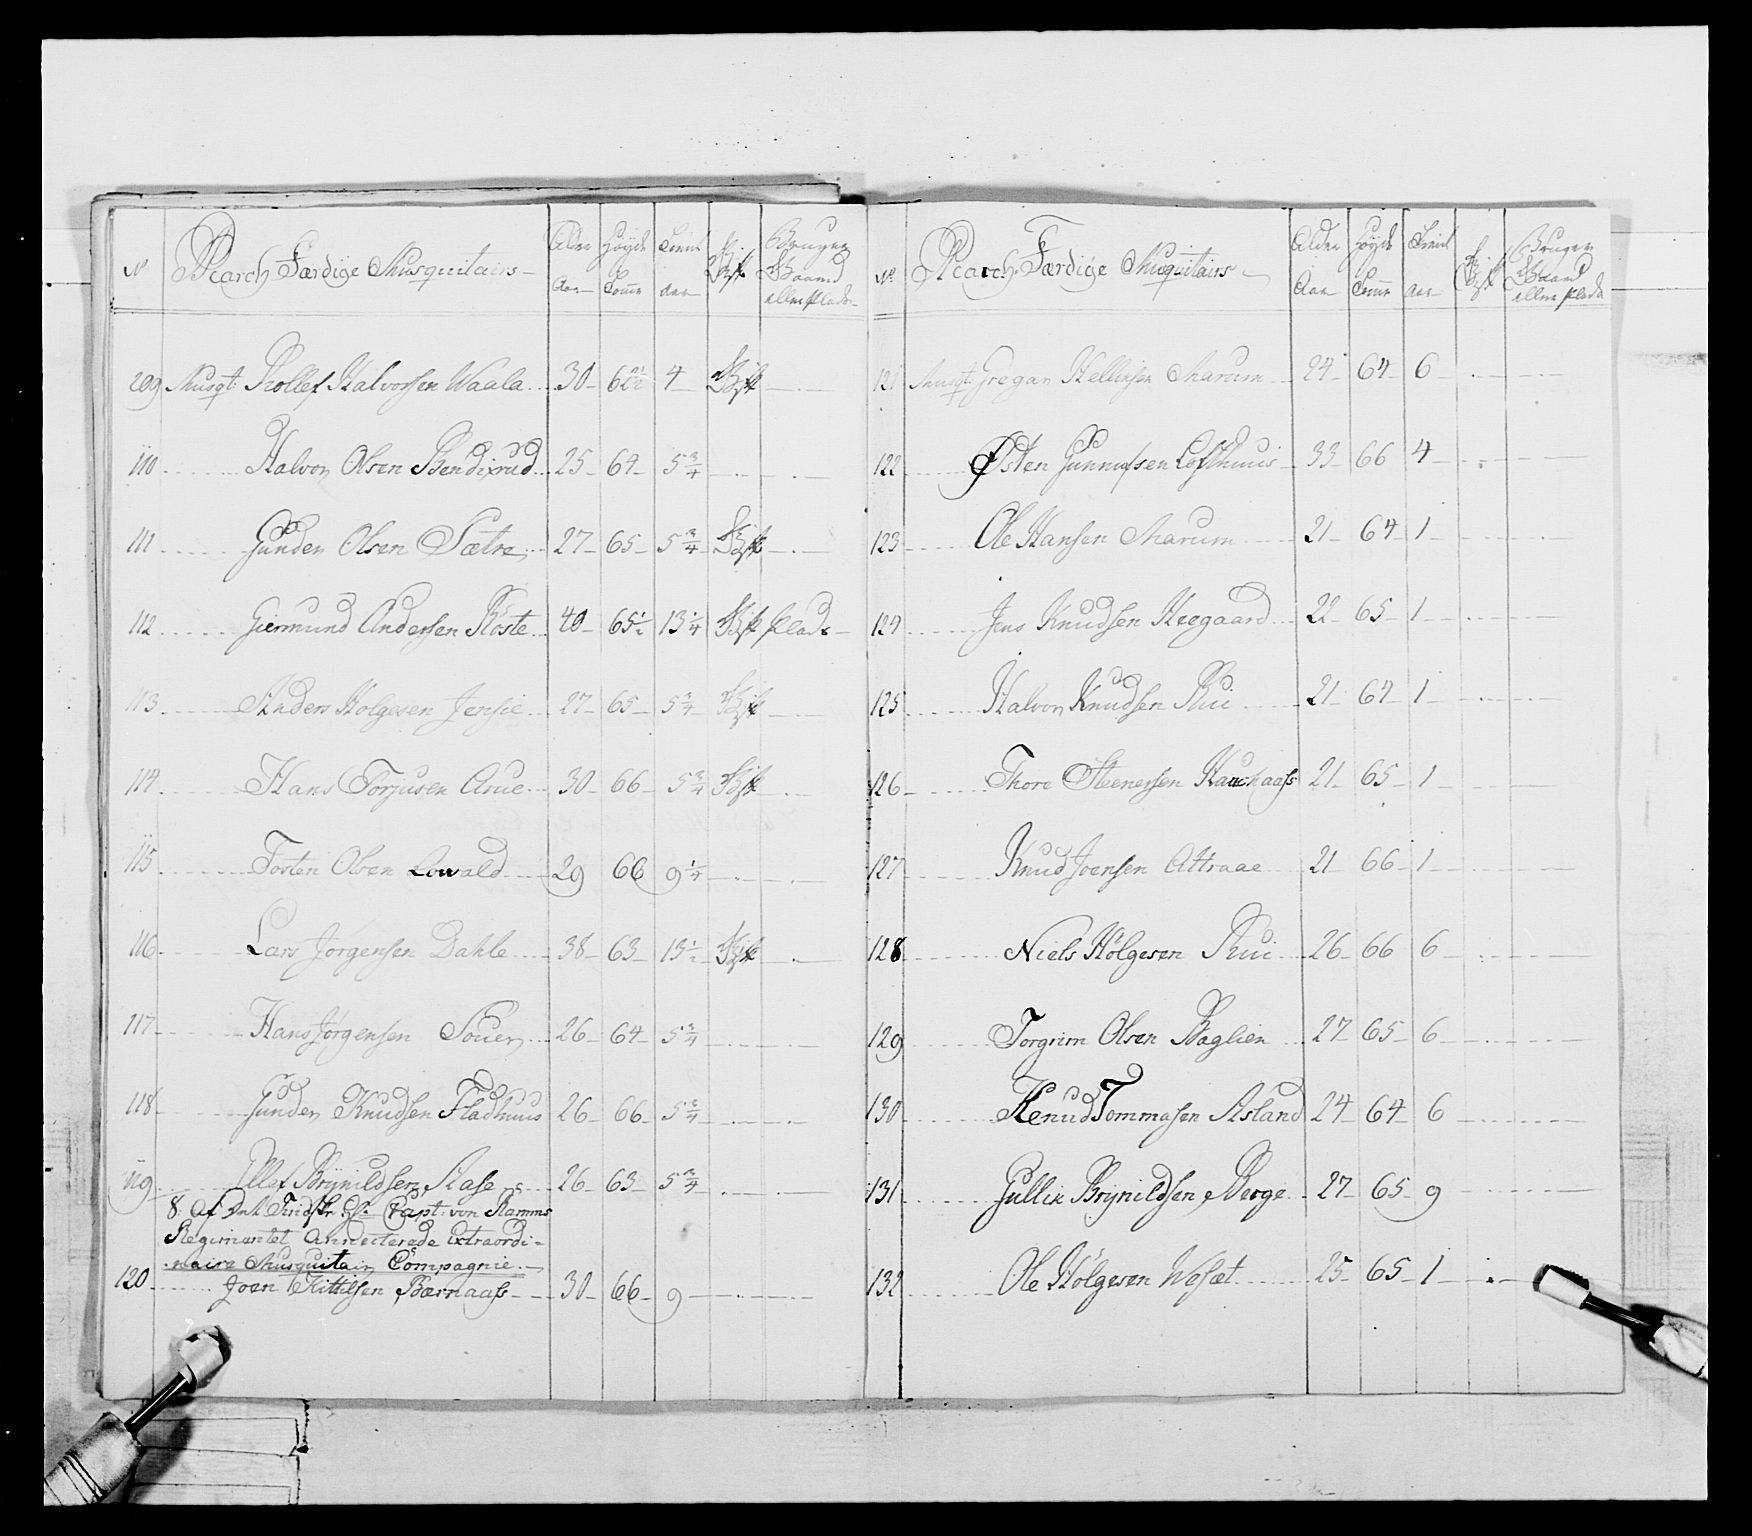 No March Færdige Musquitairs Alder Aar Høyde Tomr Tienst aar Gift Bruger Gaard eller Plads
109 Musqt: Rollef Halvorsen Waala 30 62½ 4 Gift
110 Halvor Olsen Bendixrud 25 64 5¾
111 Gunder Olsen Sætre 27 65 5¾ Gift
112 Giermund Andersen Röste 40 65½ 13¼ Gift Plads
113 Anders Holgesen Jensie 27 65 5¾ Gift
114 Hans Torjusen Arue 30 66 5¾ Gift
115 Tosten Olsen Lowald 29 66 9¼
116 Lars Jørgensen Dahle 38 63 13½ Gift
117 Hans Jørgensen Souer 26 64 5¾
118 Gunder Knudsen Fladhuus 26 66 5¾
119 Ellef Brynildsen Aase 26 63 5¾
8. Af Capt: von Ramms
Regimentet Annecterede Extraordi-
naire Musquitair Compagnie
120 Joen Kittilsen Bærnaass 30 66 9
No March Færdige Musquitairs Alder Aar Høyde Tomr Tienst aar Gift Bruger Gaard eller Plads
121 Musqt: Gregar Hellissen Marum 24 64 6
122 Østen Gunnufsen Lofthuus 33 66 4
123 Ole Hansen Marum 21 64 1
124 Jens Knudsen Heegaard 22 65 1
125 Halvor Knudsen Rui 21 64 1
126 Thore Steenersen Haukaass 21 65 1
127 Knud Joensen Attraae 21 66 1
128 Niels Hölgesen Rui 26 66 6
129 Torgrim Olsen Baglien 27 65 6
130 Knud Tommasen Asland 24 64 6
131 Gullik Brynildsen Berge 27 65 9
132 Ole Hölgesen Wosæt 25 65 1